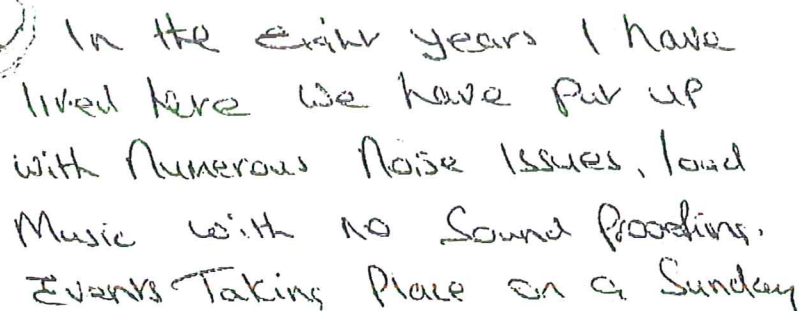 In the eight years I have
lived here we have put up
with Numerous Noise Issues, loud
Music with no Sound Proofing.
Events Taking Place on a Sunday